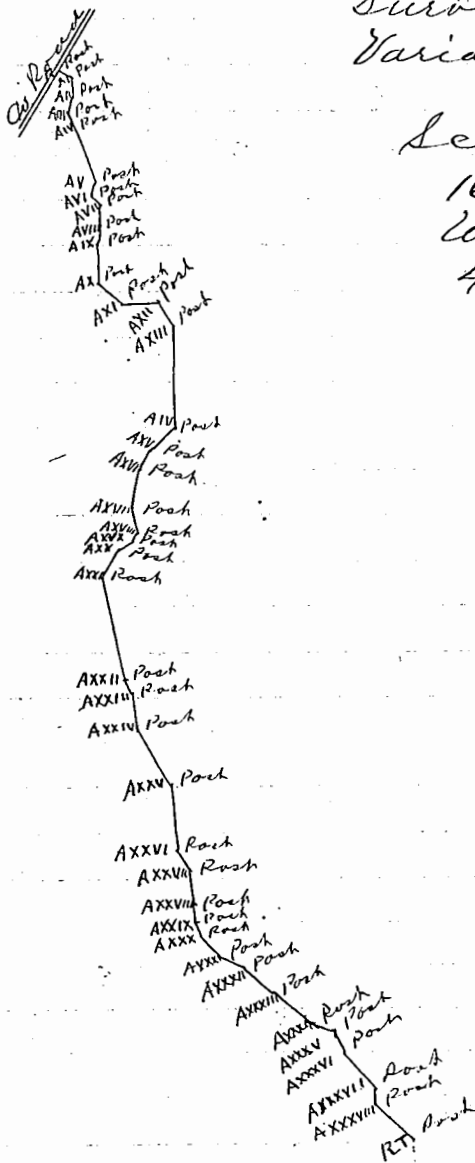 Surv
Varia
Road
Post
AI Post
AII Post
AIII Post
AIV Post
Sc
AV Post
AVI Post
AVII Post
AVIII Post
AIX Post
4
AX Post
AXI Post
AXII Post
AXIII Post
AIV Post
AXV Post
AXVI Post
AXVII Post
AXVIII Post
AXVX Post
AXX Post
AXXI Post
AXXII Post
AXXIII Post
AXXIV Post
AXXV Post
AXXVI Post
AXXVII Post
AXXVIII Post
AXXIX Post
AXXX Post
AXXXI Post
AXXXII Post
AXXXIII Post
AXXXIV Post
AXXXV Post
AXXXVI Post
AXXXVII Post
AXXXVIII Post
RT Post